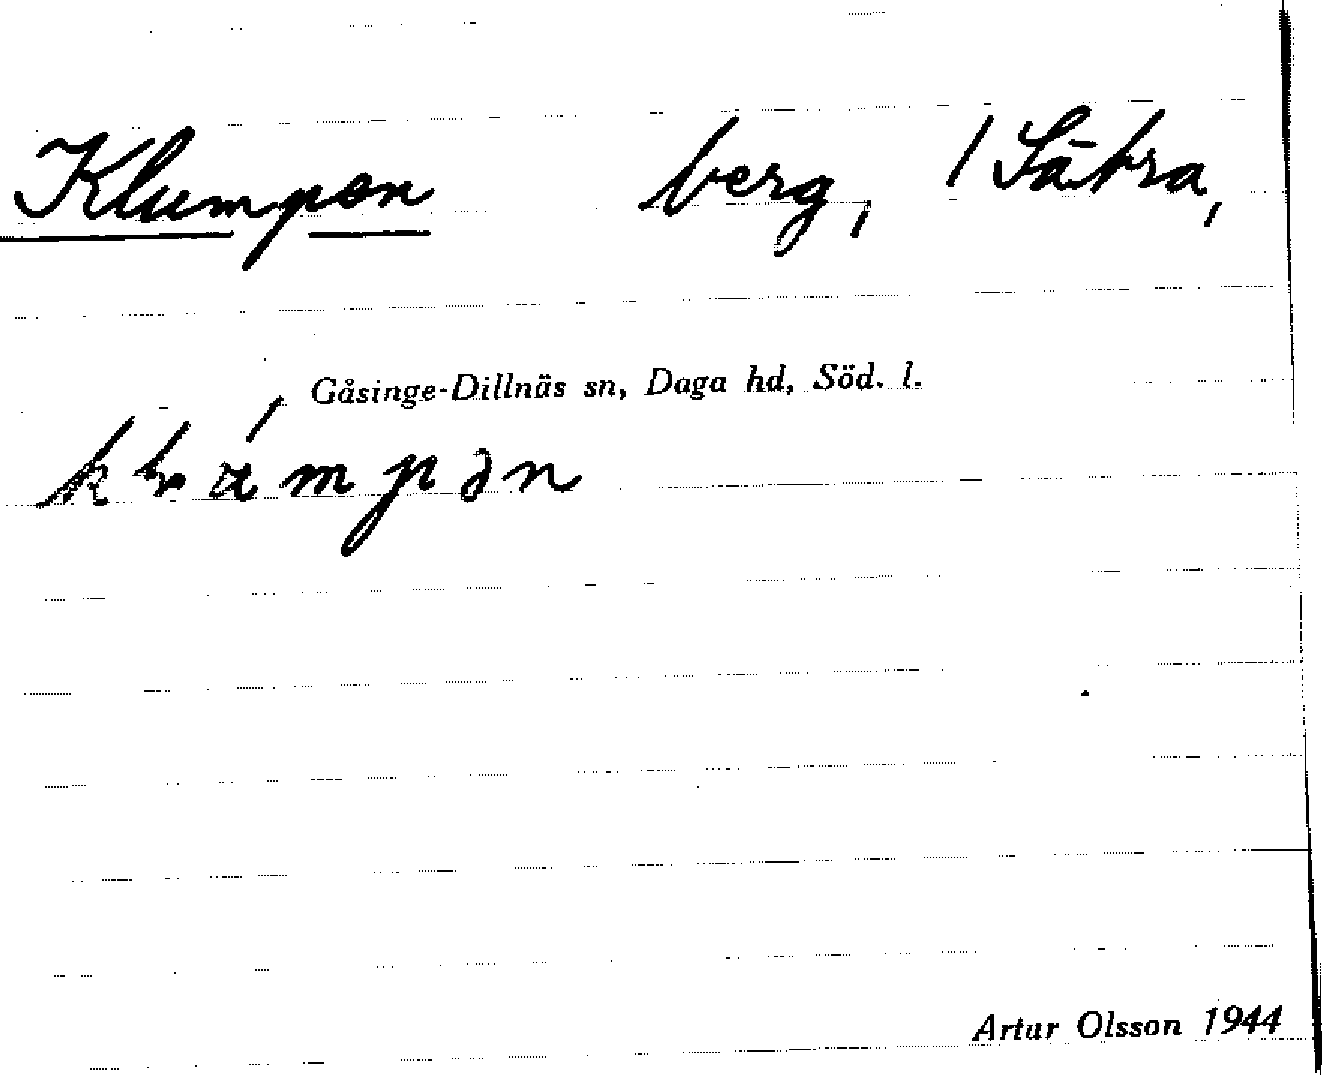 Klumpen berg, / Sätra,
Gåsinge-Dillnäs sn, Daga hd, Söd. l.
Artur Olsson 1944